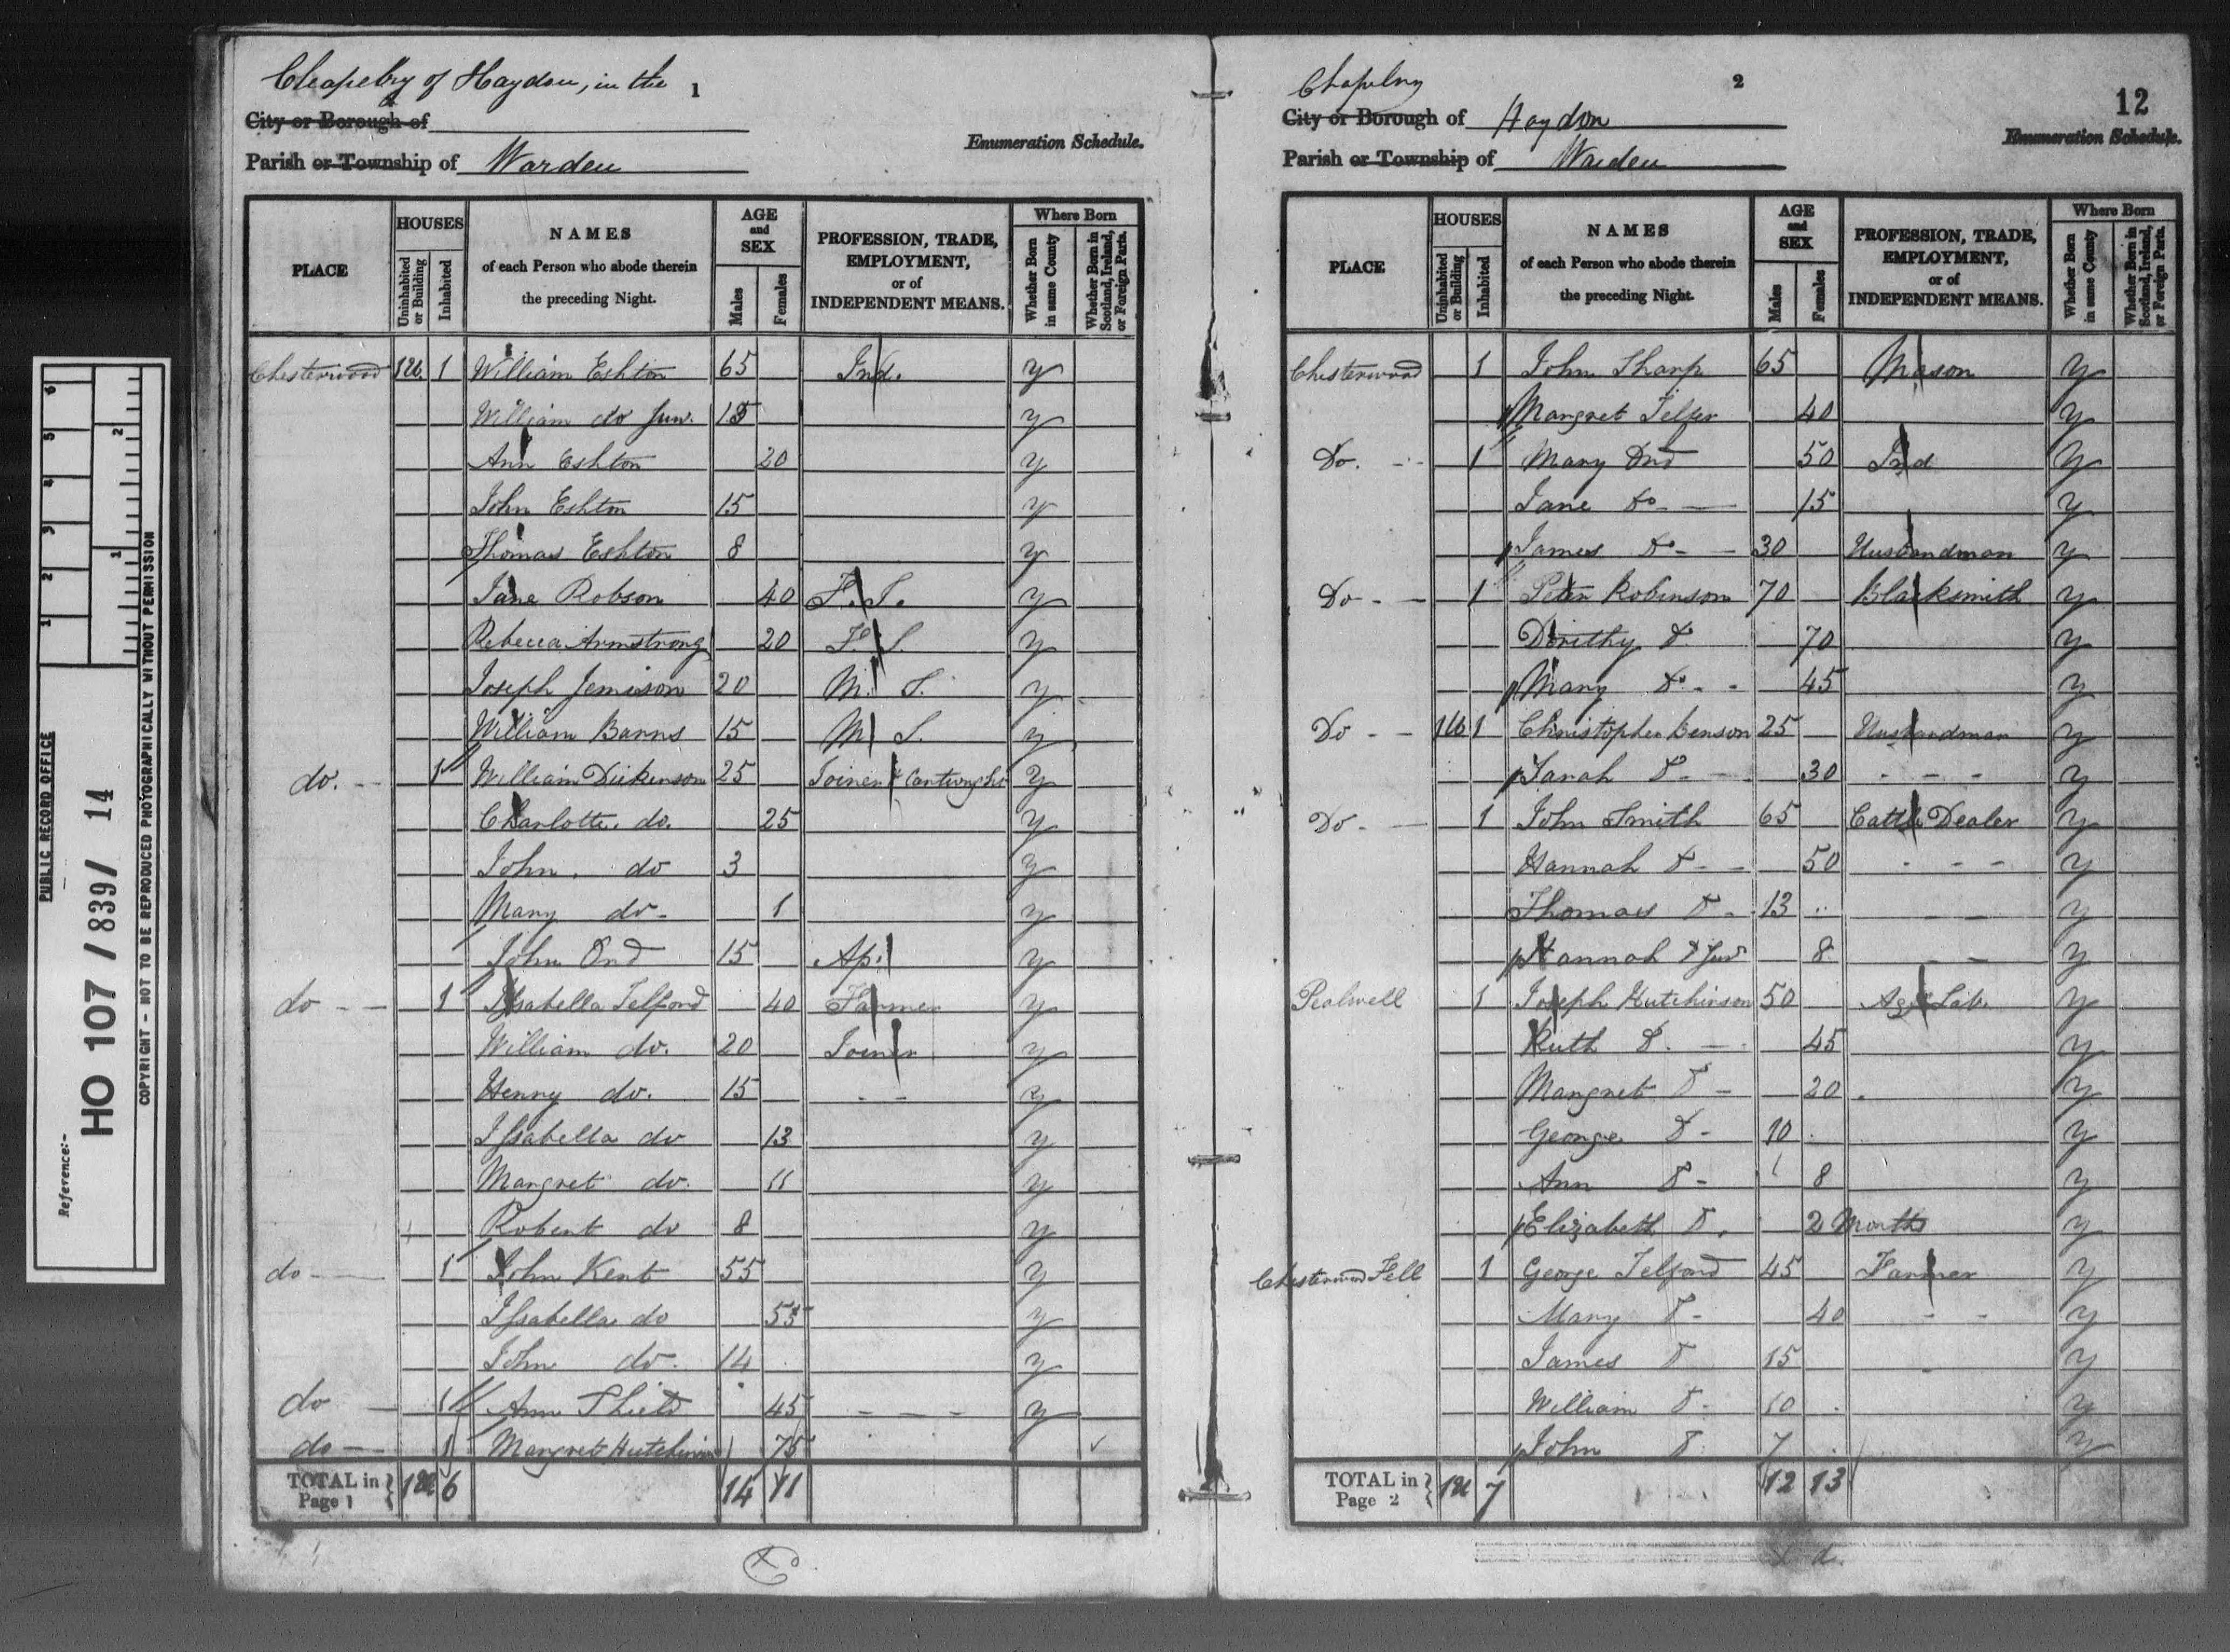 Chapelry of Haydon, in the 1
City or Borough of
Parish or Township of Warden
Enumeration Schedule.
PLACE
HOUSES
Uninhabited or Building
Inhabited
NAMES of each Person who abode therein the preceding Night.
AGE and SEX
Males
Females
PROFESSION, TRADE, EMPLOYMENT, or of INDEPENDENT MEANS.
Where Born
Whether Born in same County
Whether Born in Scotland, Ireland, or Foreign Parts.
Chesterwood 1U 1 William Eshton 65 Ind. y
William do Jun. 15 y
Ann Eshton 20 y
John Eshton 15 y
Thomas Eshton 8 y
Jane Robson 40 F. S. y
Rebecca Armstrong 20 F. S. y
Joseph Jemison 20 M. S. y
William Barns 15 M S. y
do. 1 William Dickinson 25 Joiner & Cartwright y
Charlotte do. 25 y
John do 3 y
Mary do 1 y
John Ord 15 Ap. y
do 1 Issabella Telford 40 Farmer y
William do. 20 Joiner y
Henry do. 15 y
Issabella do 13 y
Margret do. 11 y
Robert do 8 y
do 1 John Kent 55 y
Issabella do 55 y
John do. 14 y
do 1 Ann Shield 45 y
do 1 Margret Hutchinson 75
TOTAL in Page 1 1U 6 14 11
Chapelry 2
12
City or Borough of Haydon
Parish or Township of Warden
Enumeration Schedule.
PLACE
HOUSES
Uninhabited or Building
Inhabited
NAMES of each Person who abode therein the preceding Night.
AGE and SEX
Males
Females
PROFESSION, TRADE, EMPLOYMENT, or of INDEPENDENT MEANS.
Where Born
Whether Born in same County
Whether Born in Scotland, Ireland, or Foreign Parts.
Chesterwood 1 John Sharp 65 Mason y
Margret Telfer 40 y
Do. 1 Mary Ord 50 Ind y
Jane Do 15 y
James Do 30 Husbandman y
Do 1 Peter Robinson 70 Blacksmith y
Dorithy D 70 y
Mary Do 45 y
Do 1U 1 Christopher Benson 25 Husbandman y
Sarah D 30 y
Do 1 John Smith 65 Cattle Dealer y
Hannah D 50 y
Thomas D 13 y
Hannah D Jun 8 y
Pealwell 1 Joseph Hutchinson 50 Ag. Lab. y
Ruth D. 45 y
Margret D 20 y
George D 10 y
Ann D 8 y
Elizabeth D. 2 Months y
Chesterwood Fell 1 George Telford 45 Farmer y
Mary D 40 y
James D 15 y
William D 10 y
John D 7 y
TOTAL in Page 2 1U 7 12 13
PUBLIC RECORD OFFICE
Reference:-
HO 107 / 839 / 14
COPYRIGHT - NOT TO BE REPRODUCED PHOTOGRAPHICALLY WITHOUT PERMISSION
1 2 3 4 5 6
1 2